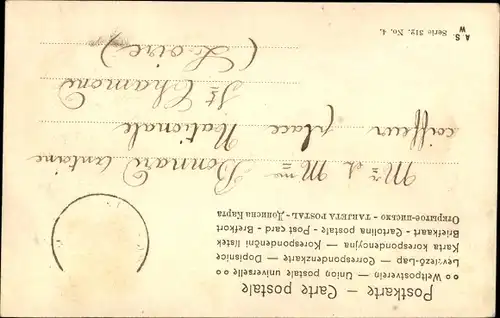 Postkarte — Carte postale
Weltpostverein — Union postale universelle
Levelező-Lap — Correspondenzkarte — Dopisnice
Karta korespondencyjna — Korespondenčni listek
Briefkaart - Cartolina postale - Post card - Brefkort
Открытое-письмо - TARJETA POSTAL - Дописна Карта
Mr et Mme Bonnard Antoine
coiffeur place Nationale
St Chamond
(Loire)
A. S.
W Serie 312. No. 4.